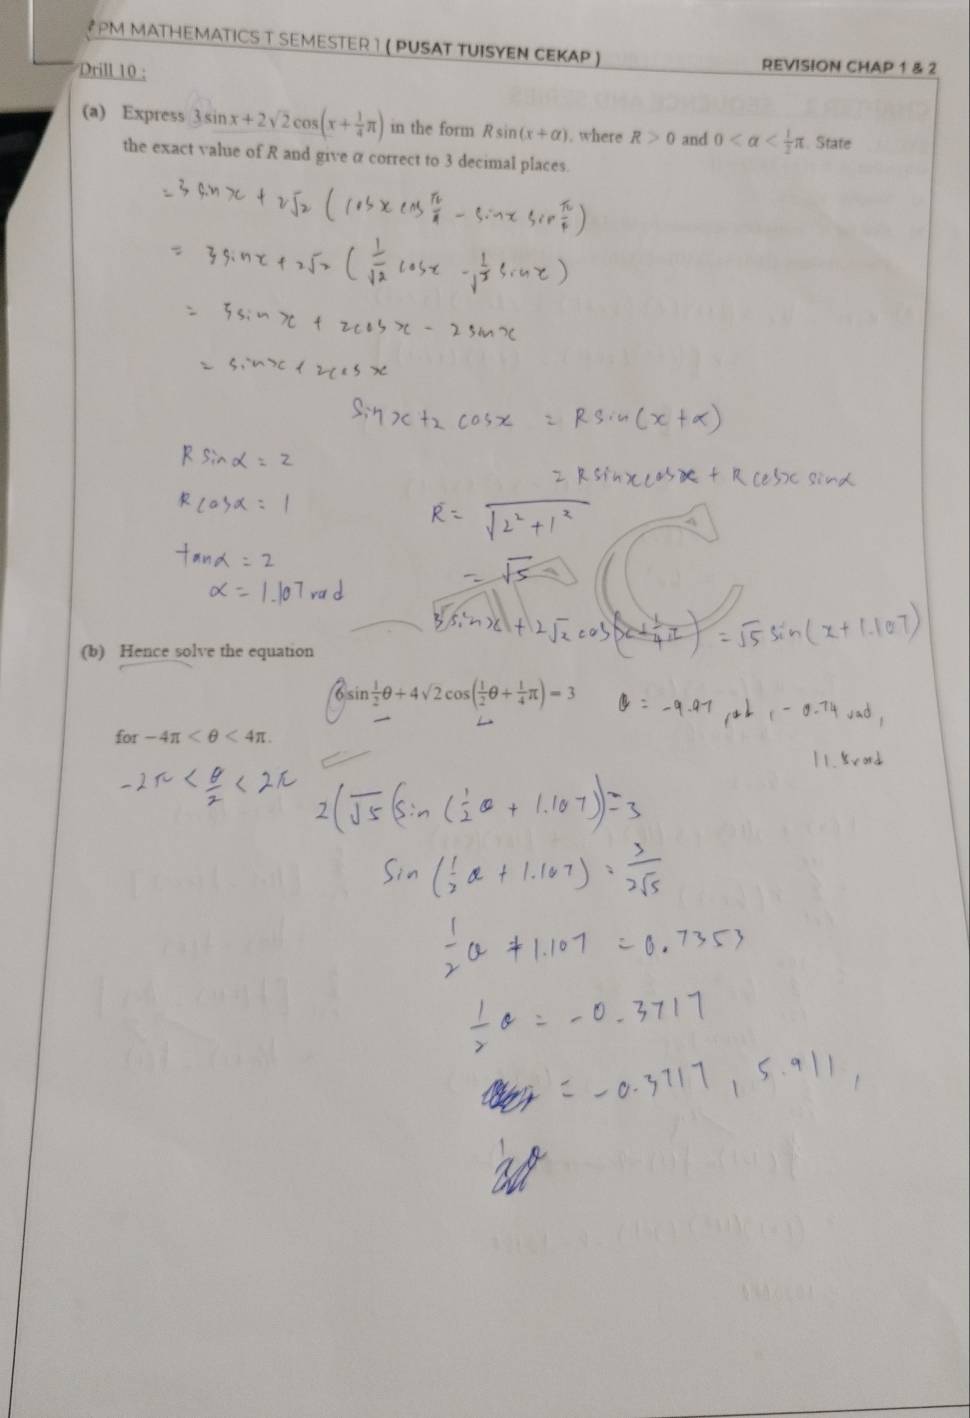 PM MATHEMATICS T SEMESTER 1 ( PUSAT TUISYEN CEKAP )
REVISION CHAP 1 & 2
Drill 10 :
(a) Express 3 sin x + 2√2 cos(x + 1/4 π) in the form R sin(x + α), where R > 0 and 0 < α < 1/2 π. State
the exact value of R and give α correct to 3 decimal places.
= 3 sin x + 2√2 ( cos x cos π/4 - sin x sin π/4 )
= 3 sin x + 2√2 ( 1/√2 cos x - 1/√2 sin x )
= 3 sin x + 2 cos x - 2 sin x
= sin x + 2 cos x
sin x + 2 cos x = R sin(x + α)
= R sin x cos α + R cos x sin α
R sin α = 2
R cos α = 1
tan α = 2
α = 1.107 rad
R = √(2² + 1²)
= √5
3 sin x + 2√2 cos(x + 1/4 π) = √5 sin(x + 1.107)
(b) Hence solve the equation
6 sin 1/2 θ + 4√2 cos(1/2 θ + 1/4 π) = 3
θ = -9.97 rad, -0.74 rad,
11.8 rad
for -4π < θ < 4π.
-2π < θ/2 < 2π
2(√5 (sin (1/2 θ + 1.107)) = 3
sin (1/2 θ + 1.107) = 3/2√5
1/2 θ + 1.107 = 0.7353
1/2 θ = -0.3717
= -0.3717, 5.911,
TC